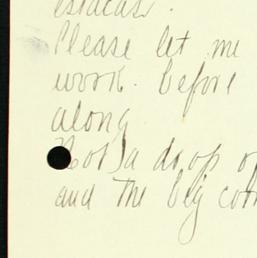 Please let me
work. before
along
Not a drop o
and the big cott